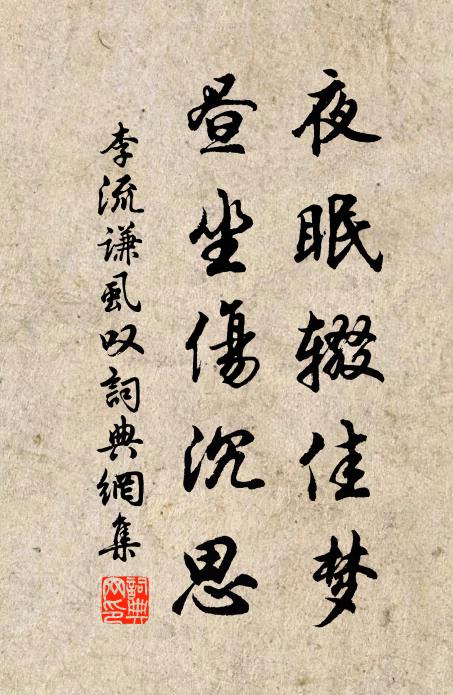 夜眠辍佳梦
昼坐傷沉思
李流谦虱叹詞典網集
詞典网印